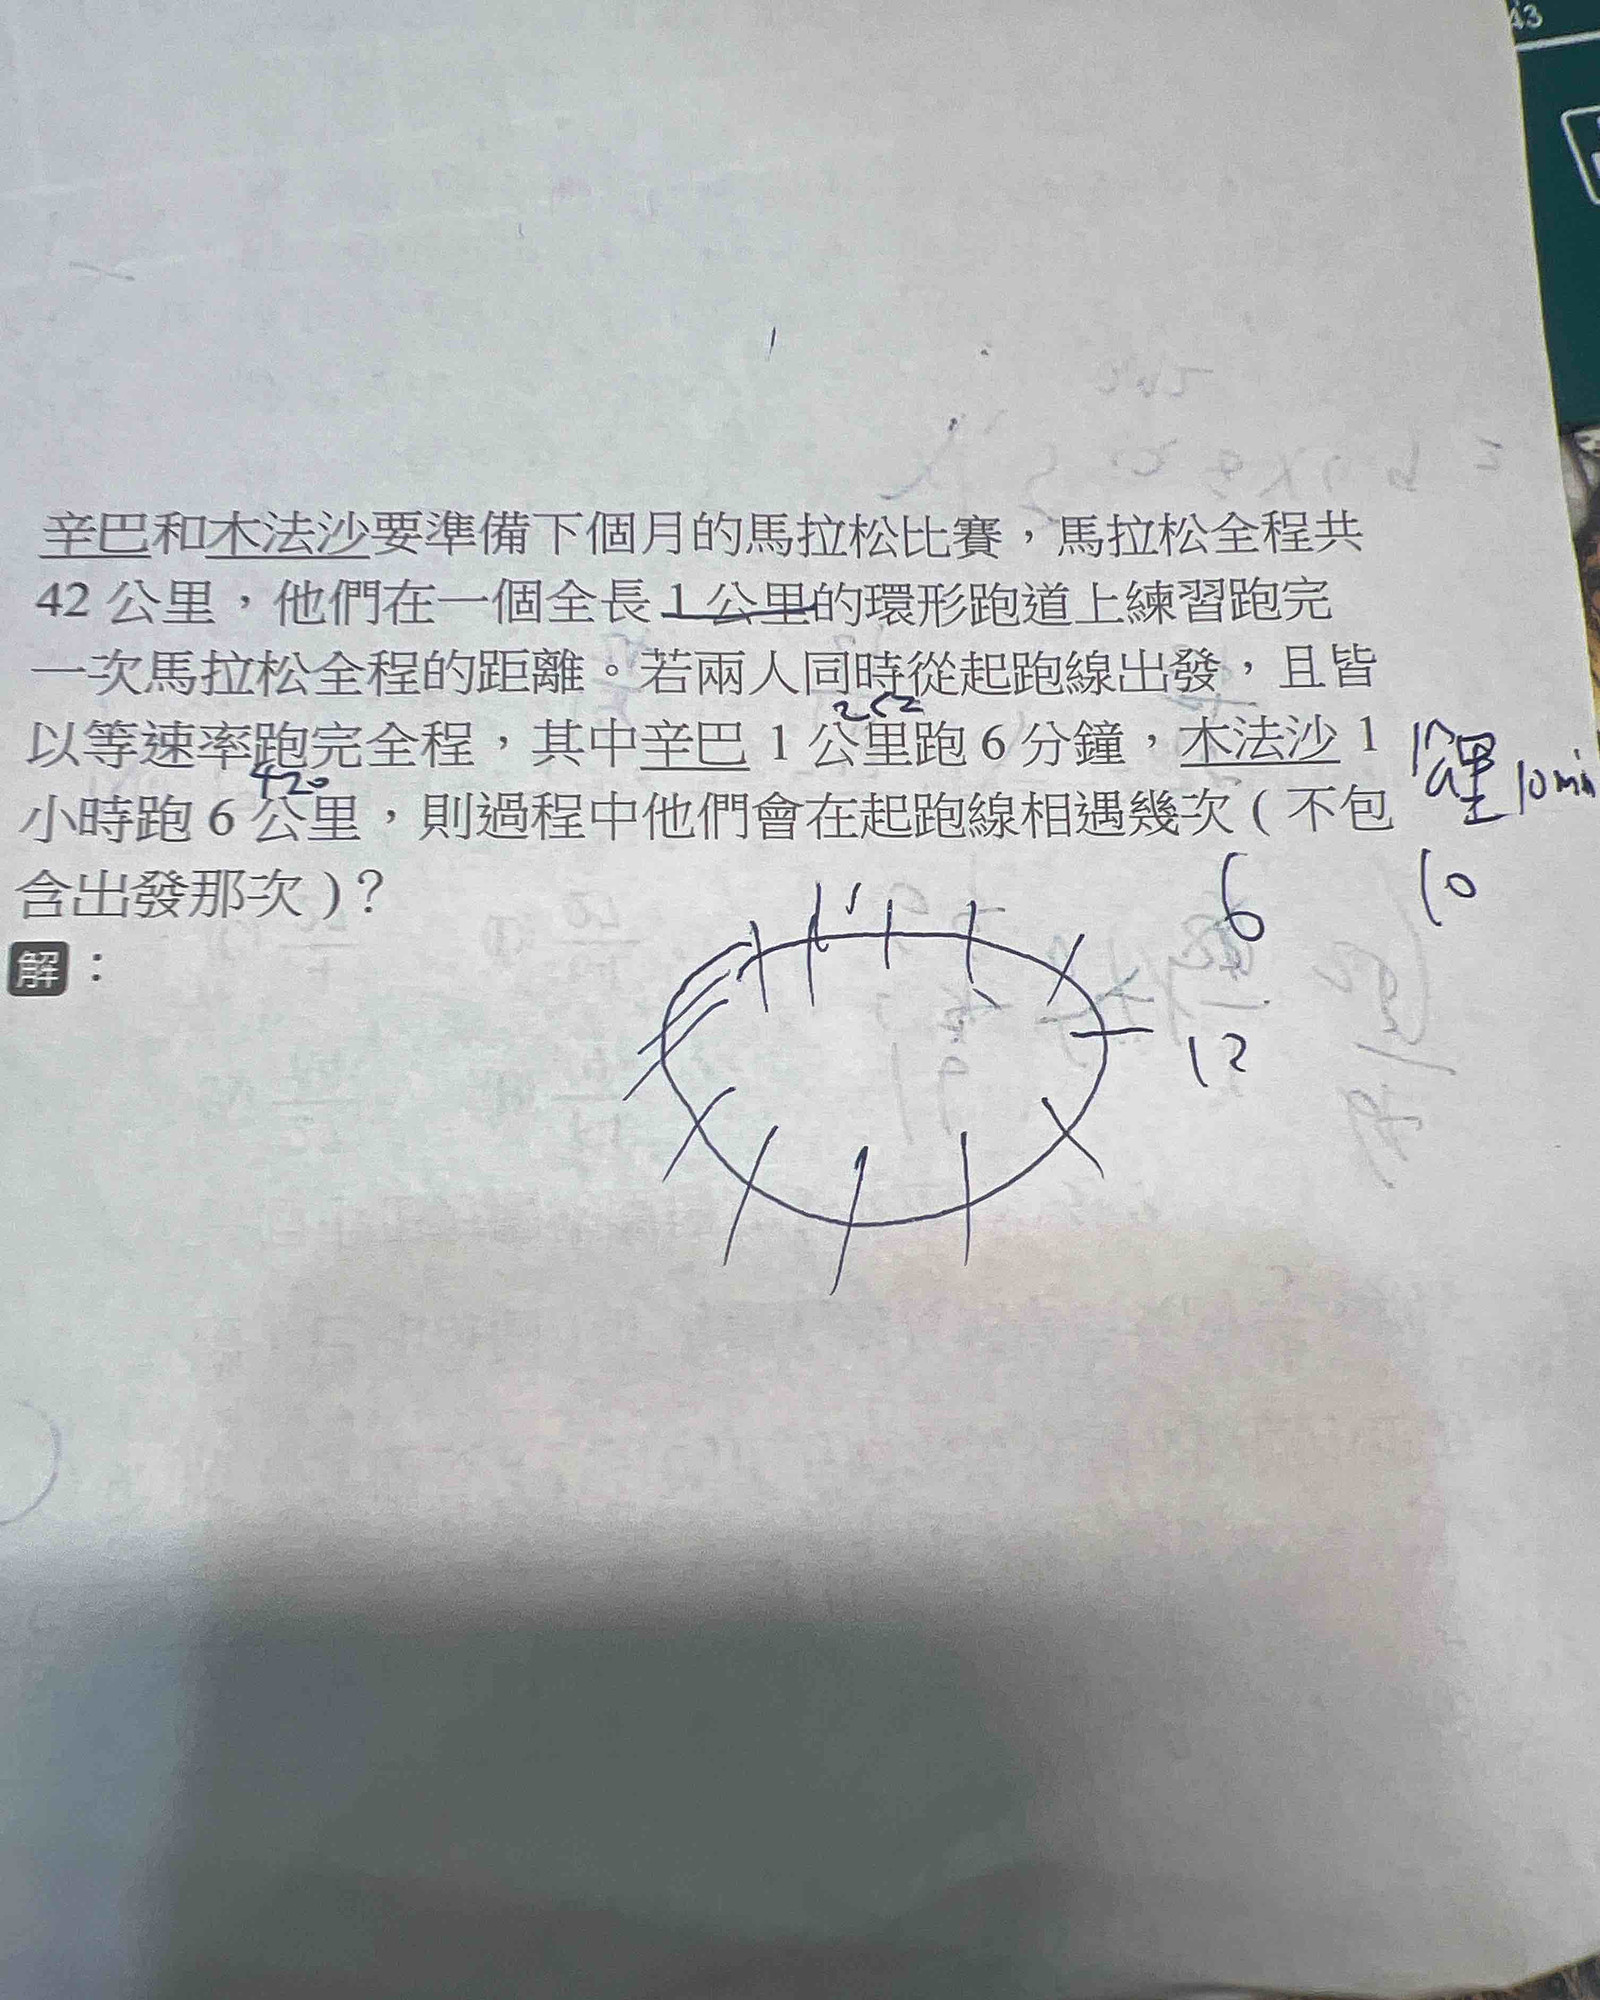 43
辛巴和木法沙要準備下個月的馬拉松比賽，馬拉松全程共
42 公里，他們在一個全長 1 公里的環形跑道上練習跑完
一次馬拉松全程的距離。若兩人同時從起跑線出發，且皆
252
以等速率跑完全程，其中辛巴 1 公里跑 6 分鐘，木法沙 1
420
1公里 10min
小時跑 6 公里，則過程中他們會在起跑線相遇幾次 ( 不包
6 10
含出發那次 )？
12
解：